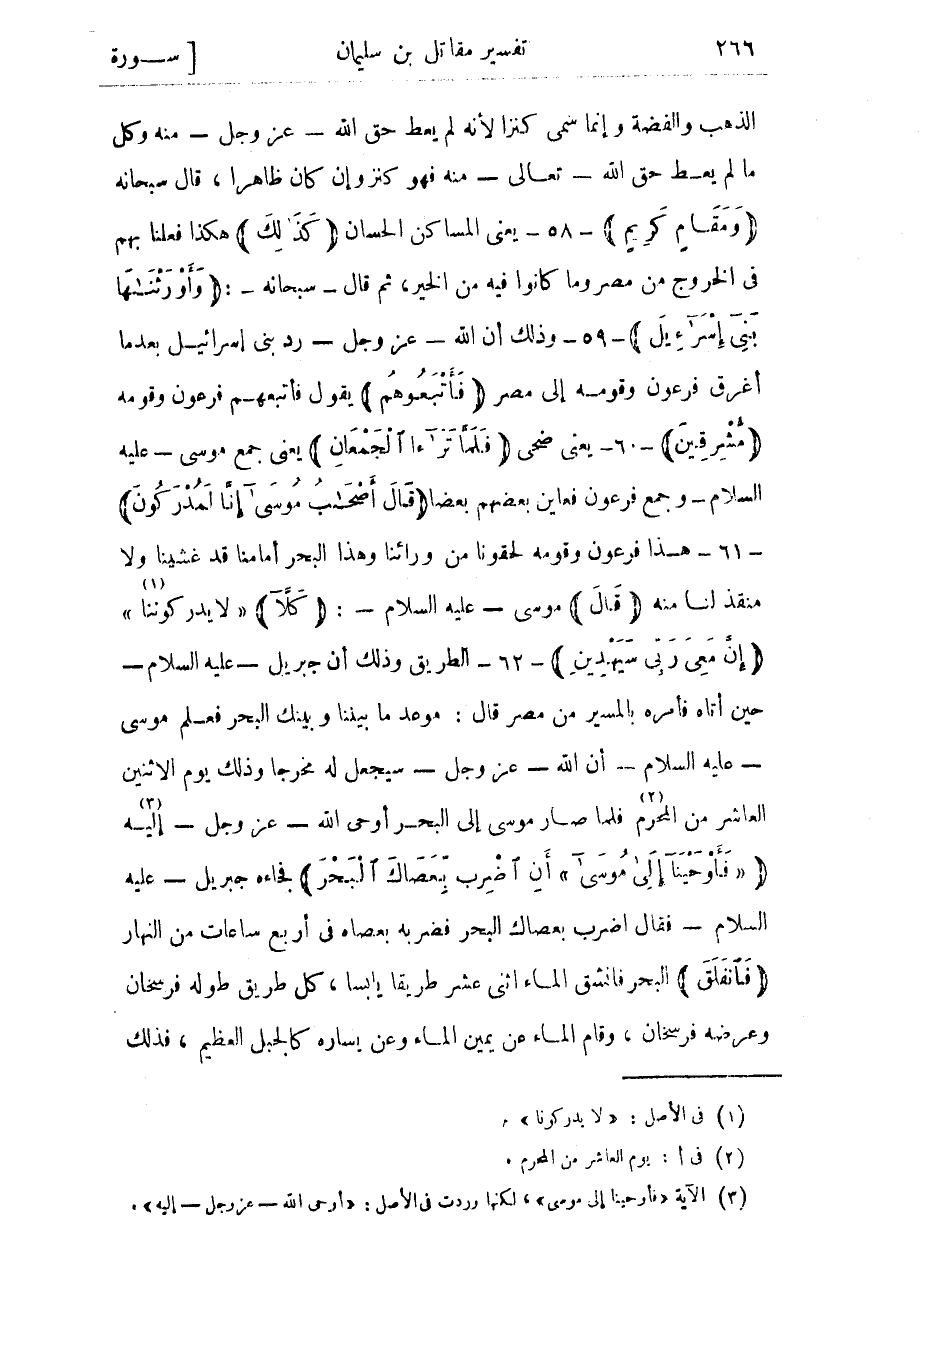 ٢٦٦ تفسير مقاتل بن سليمان [ سـورة
الذهب والفضة وإنما سمى كنزا لأنه لم يعط حق الله — عز وجل — منه وكل
ما لم يعـط حق الله — تعـالى — منه فهو كنز وإن كان ظاهرا ، قال سبحانه
﴿ وَمَقَـامٍ كَرِيمٍ ﴾ - ٥٨ - يعنى المساكن الحسان ﴿ كَذَٰلِكَ ﴾ هكذا فعلنا بهم
فى الخروج من مصر وما كانوا فيه من الخير، ثم قال — سبحانه — : ﴿ وَأَوْرَثْنَـٰهَا
بَنِىٓ إِسْرَٰٓءِيلَ ﴾ - ٥٩ - وذلك أن الله — عز وجل — رد بنى إسرائيـل بعدما
أغرق فرعون وقومـه إلى مصر ﴿ فَأَتْبَعُوهُم ﴾ يقول فأتبعهـم فرعون وقومه
﴿ مُّشْرِقِينَ ﴾ - ٦٠ - يعنى ضحى ﴿ فَلَمَّا تَرَٰٓءَا ٱلْجَمْعَانِ ﴾ يعنى جمع موسى — عليه
السلام — وجمع فرعون فعاين بعضهم بعضا ﴿ قَالَ أَصْحَـٰبُ مُوسَىٰٓ إِنَّا لَمُدْرَكُونَ ﴾
- ٦١ - هـذا فرعون وقومه لحقونا من ورائنا وهذا البحر أمامنا قد غشينا ولا
منقذ لنـا منه ﴿ قَالَ ﴾ موسى — عليه السلام — : ﴿ كَلَّآ ﴾ « لا يدركوننا (١) »
﴿ إِنَّ مَعِىَ رَبِّى سَيَهْدِينِ ﴾ - ٦٢ - الطريق وذلك أن جبريل — عليه السلام —
حين أتاه فأمره بالمسير من مصر قال : موعد ما بيننا وبينك البحر فعـلم موسى
— عليه السلام — أن الله — عز وجل — سيجعل له مخرجا وذلك يوم الاثنين
العاشر من المحرم (٢) فلما صـار موسى إلى البحـر أوحى الله — عز وجل — إليـه (٣)
﴿ « فَأَوْحَيْنَآ إِلَىٰ مُوسَىٰٓ » أَنِ ٱضْرِب بِّعَصَاكَ ٱلْبَحْرَ ﴾ فجاءه جبريل — عليه
السلام — فقال اضرب بعصاك البحر فضربه بعصاه فى أربع ساعات من النهار
﴿ فَٱنفَلَقَ ﴾ البحر فانشق المـاء اثنى عشر طريقا يابسا ، كل طريق طوله فرسخان
وعرضه فرسخان ، وقام المـاء عن يمين المـاء وعن يساره كالجبل العظيم ، فذلك
(١) فى الأصل : « لا يدركونا » .
(٢) فى أ : يوم العاشر من المحرم .
(٣) الآية « فأوحينا إلى موسى » ، لكنها وردت فى الأصل : « أوحى الله — عز وجل — إليه » .